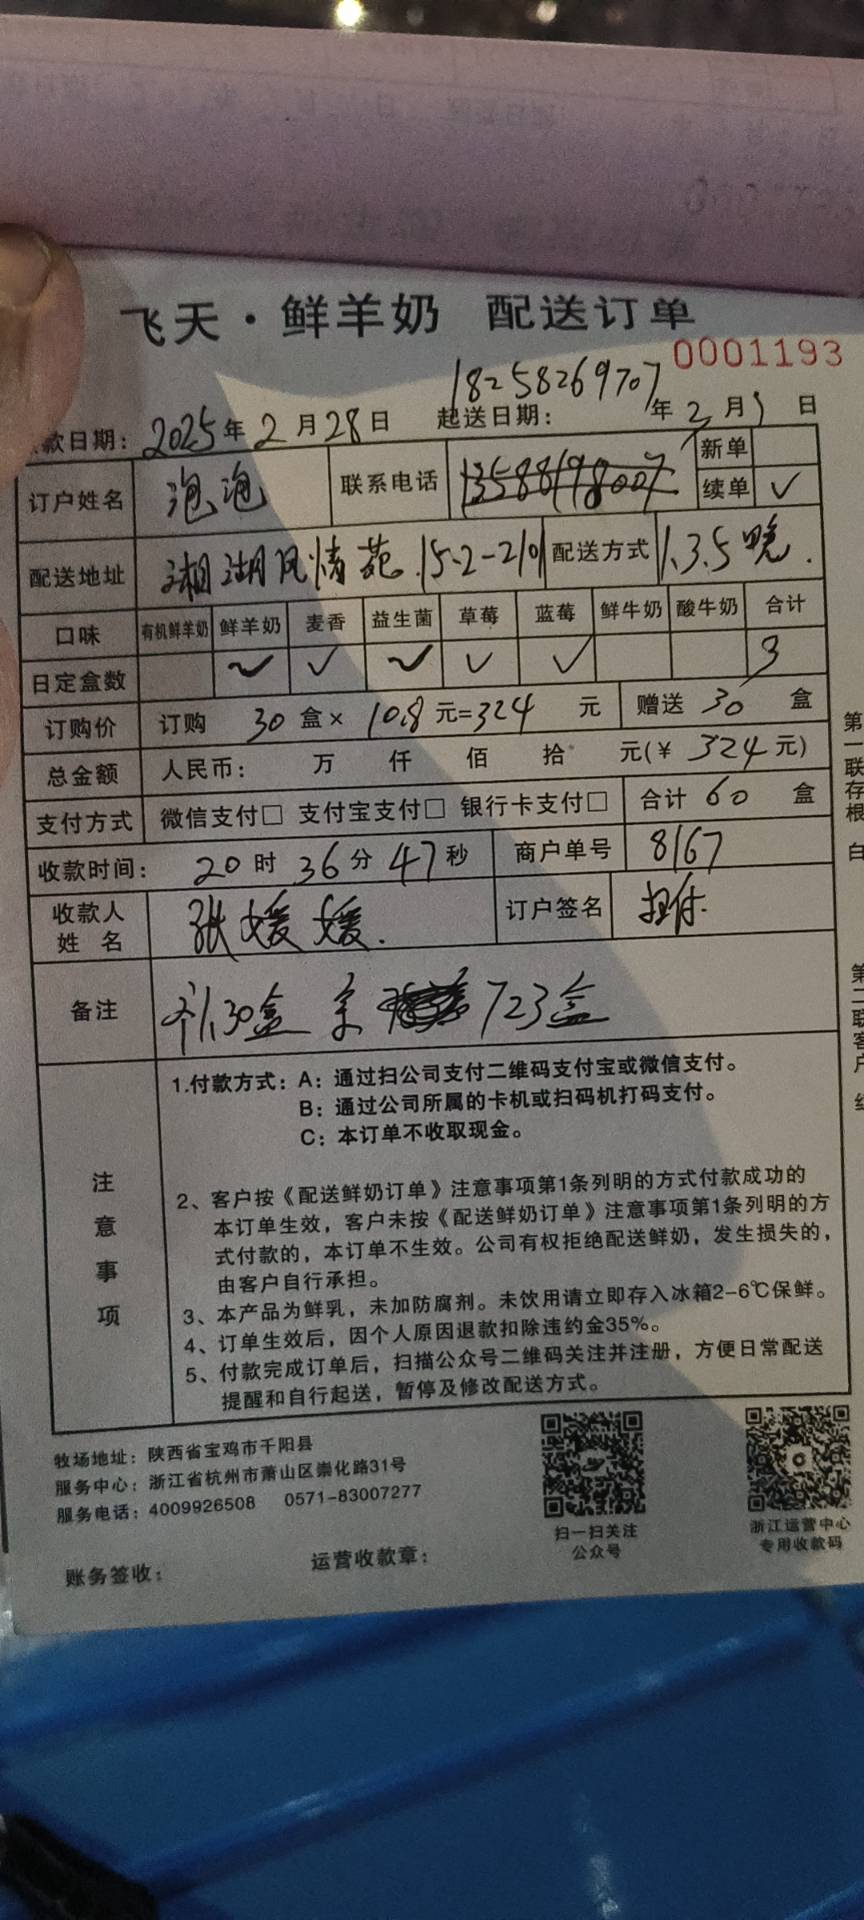 飞天·鲜羊奶 配送订单
0001193
18258269707
款日期: 2025年2月28日 起送日期: 年3月1日
订户姓名 泡泡 联系电话 13588198007 新单
续单 ✓
配送地址 湘湖风情苑.15-2-210 配送方式 1.3.5晚.
口味 有机鲜羊奶 鲜羊奶 麦香 益生菌 草莓 蓝莓 鲜牛奶 酸牛奶 合计
日定盒数 ✓ ✓ ✓ ✓ ✓ 3
订购价 订购 30盒× 10.8元=324 元 赠送 30 盒
总金额 人民币: 万 仟 佰 拾 元(¥ 324元)
支付方式 微信支付□ 支付宝支付□ 银行卡支付□ 合计 60 盒
收款时间: 20时36分47秒 商户单号 8167
收款人姓名 张媛媛. 订户签名
备注 30盒 723盒
注意事项
1.付款方式: A: 通过扫公司支付二维码支付宝或微信支付。
B: 通过公司所属的卡机或扫码机打码支付。
C: 本订单不收取现金。
2、客户按《配送鲜奶订单》注意事项第1条列明的方式付款成功的
本订单生效，客户未按《配送鲜奶订单》注意事项第1条列明的方
式付款的，本订单不生效。公司有权拒绝配送鲜奶，发生损失的，
由客户自行承担。
3、本产品为鲜乳，未加防腐剂。未饮用请立即存入冰箱2-6℃保鲜。
4、订单生效后，因个人原因退款扣除违约金35%。
5、付款完成订单后，扫描公众号二维码关注并注册，方便日常配送
提醒和自行起送，暂停及修改配送方式。
第一联存根 白
第二联客户 红
牧场地址: 陕西省宝鸡市千阳县
服务中心: 浙江省杭州市萧山区崇化路31号
服务电话: 4009926508 0571-83007277
扫一扫关注
公众号
浙江运营中心
专用收款码
账务签收: 运营收款章: